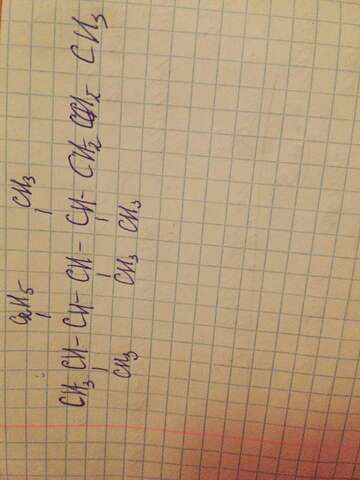 C₂H₅ CH₃
CH₃ CH- CH- CH- CH- CH₂ CH₃
CH₃ CH₃ CH₃